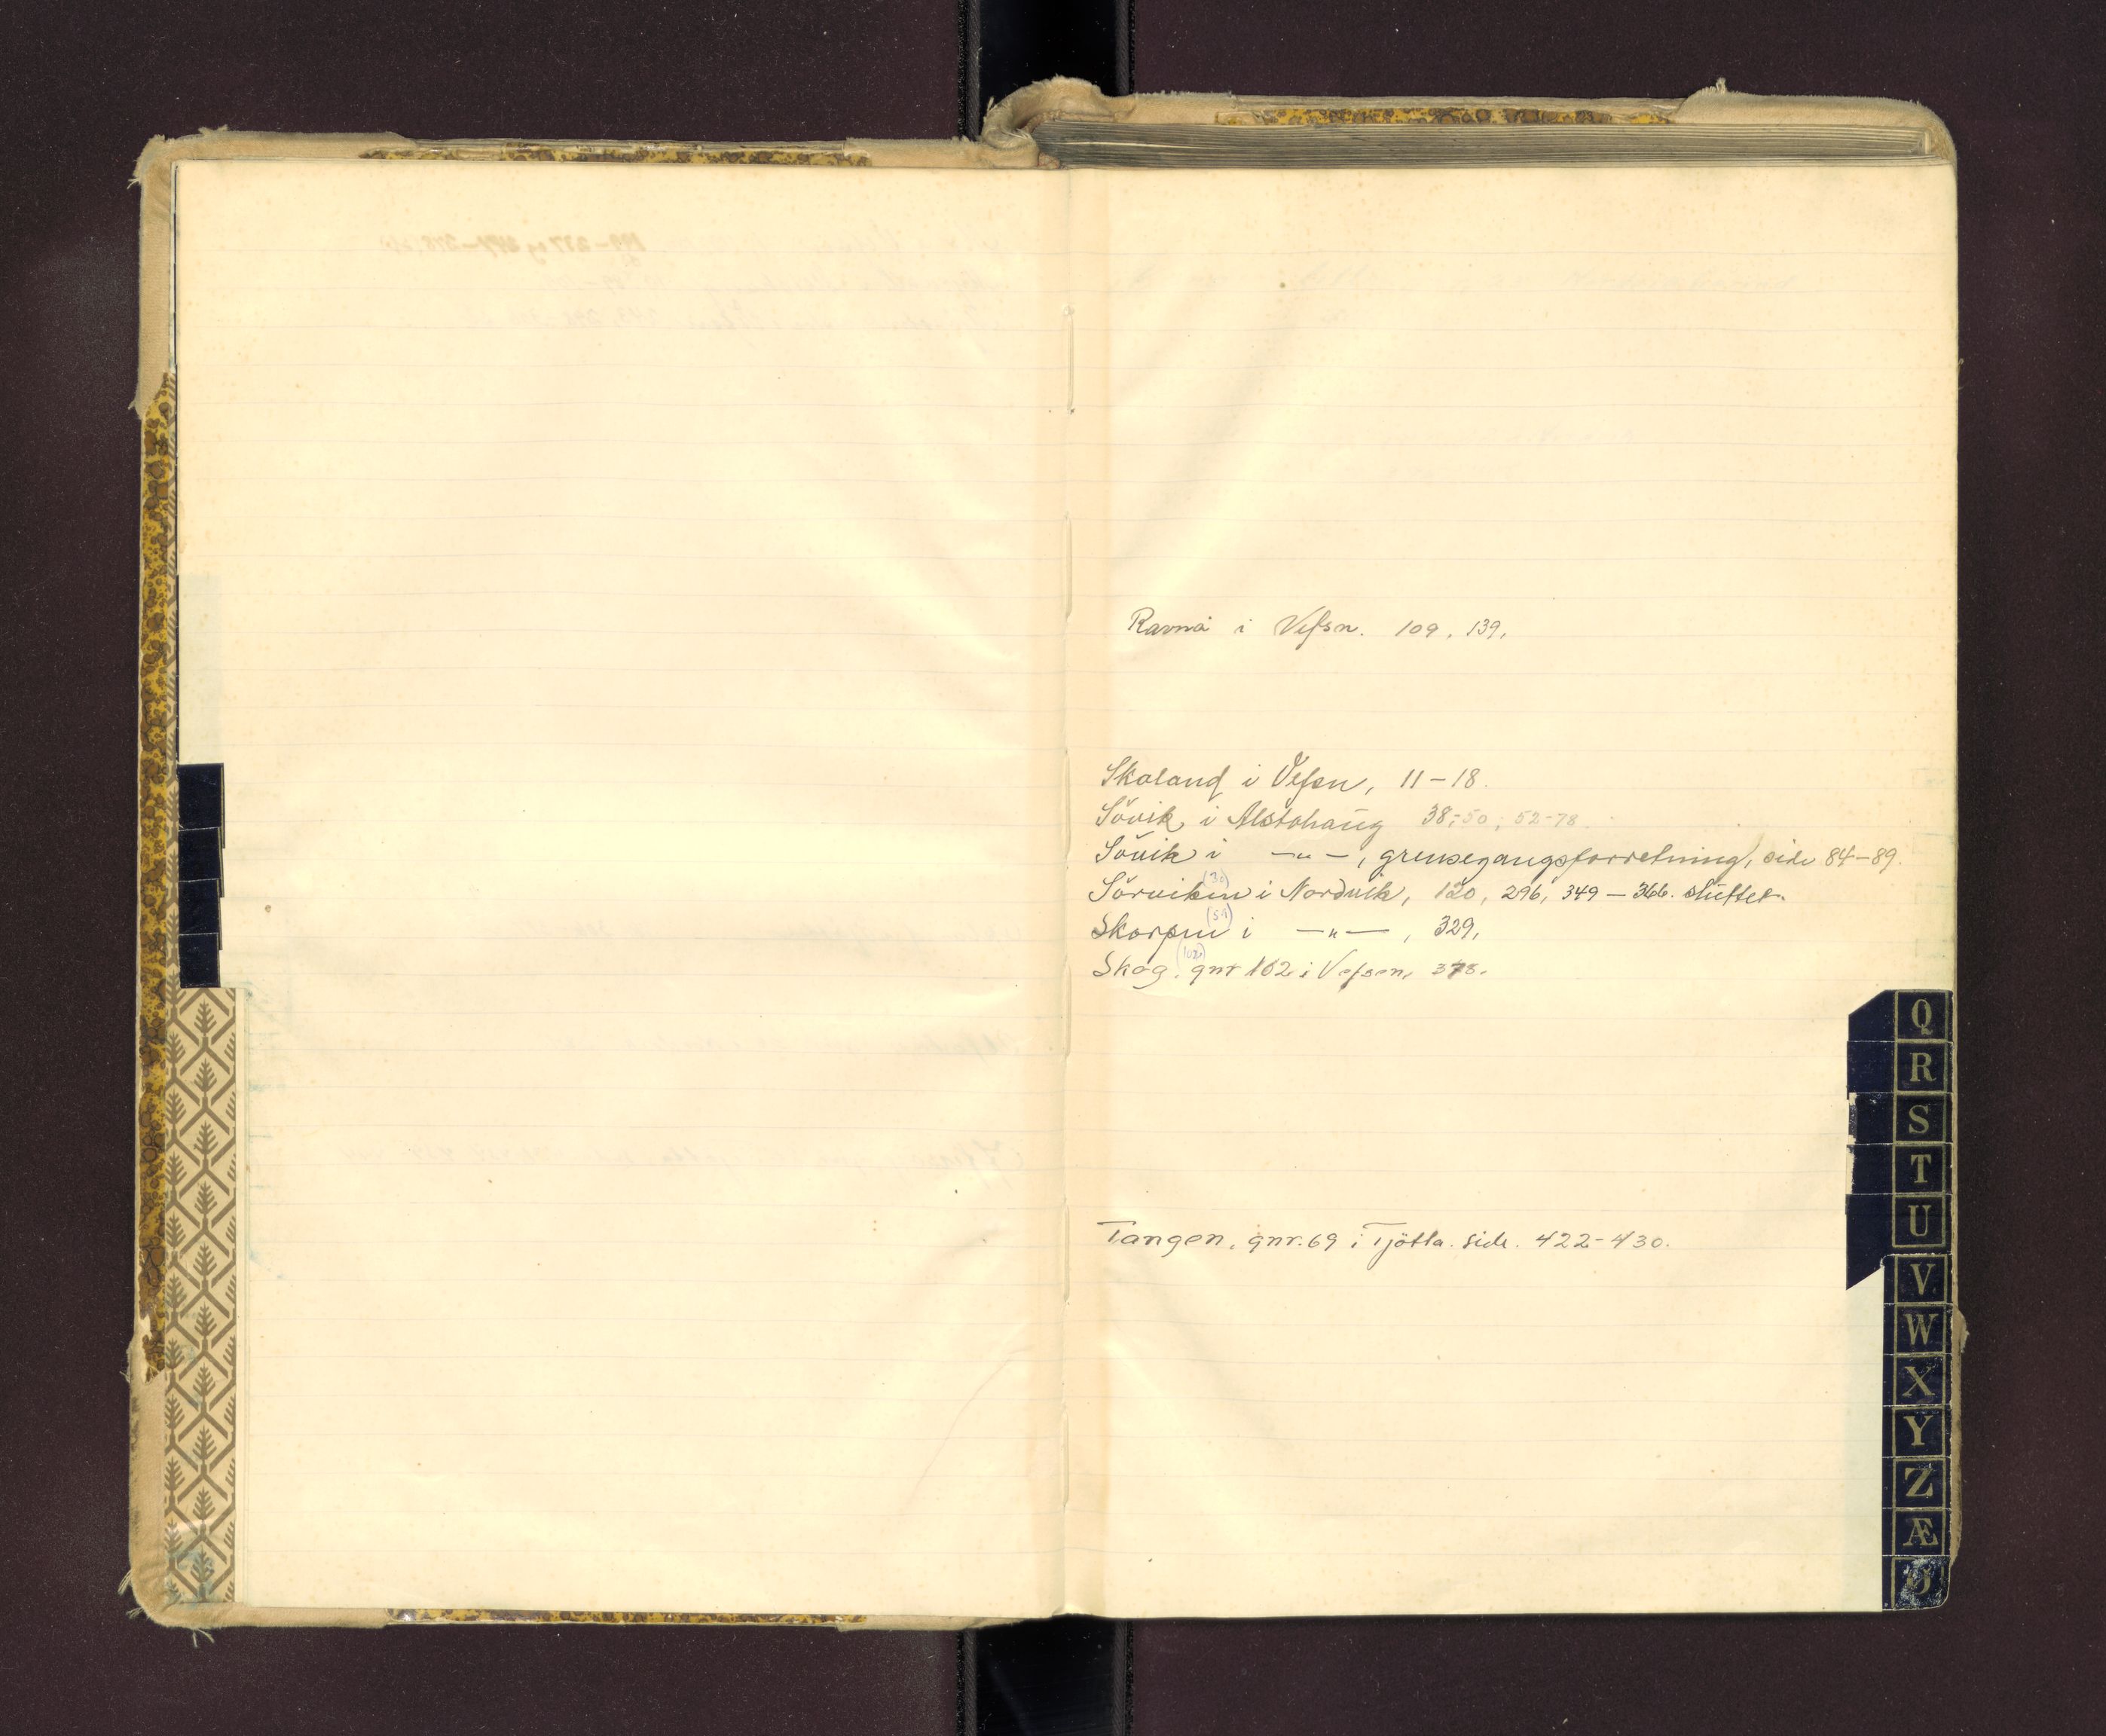 Ravnå i Vefsn. 109, 139,
Skaland i Vefsn, 11-18.
Sövik i Alstahaug 38-50, 52-78
Sövik i —"—, grensegangsforretning, side 84-89.
(30)
Sörviken i Nordvik, 120, 296, 349-366. sluttet.
(51)
Skorpen i —"—, 329,
(102)
Skog, gnr 102 i Vefsen, 378.
Tangen, gnr. 69 i Tjötta. side. 422-430.
Q
R
S
T
U
V
W
X
Y
Z
Æ
Ø